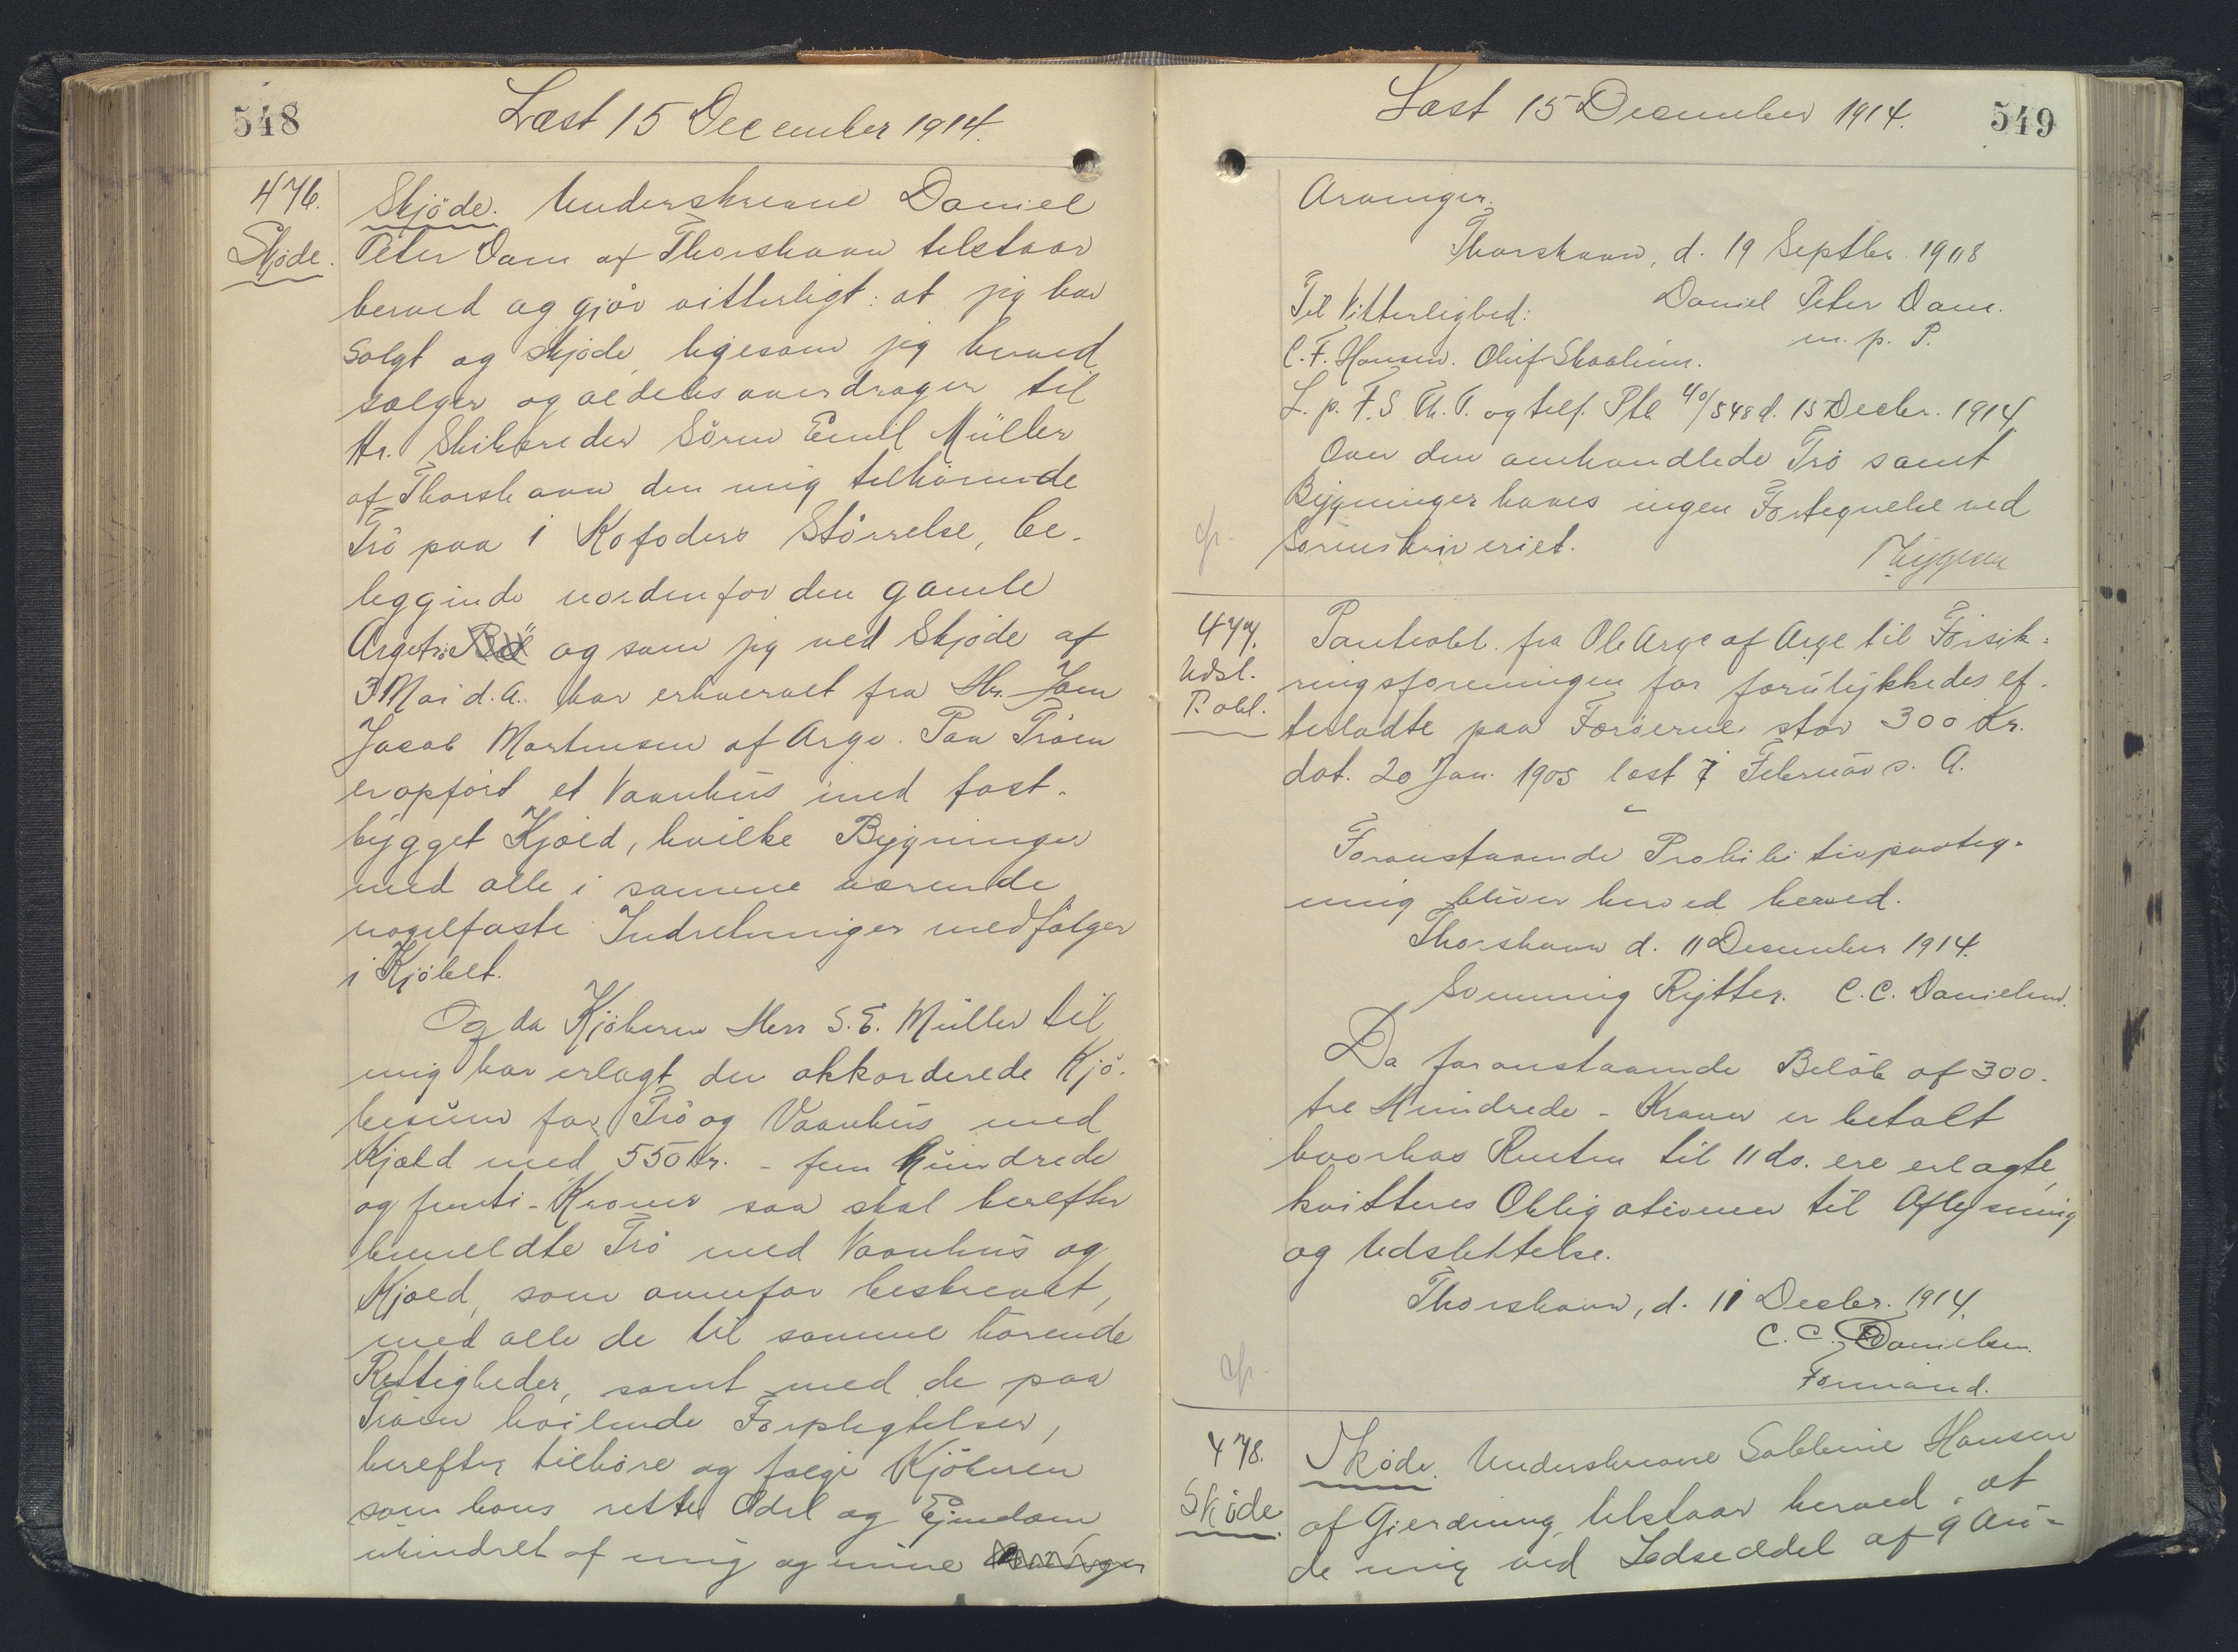 548
Læst 15 December 1914.
476.
Skjöde.
Skjöde. Underskrevne Daniel
Peter Dam af Thorshavn tilstaar
herved og gjör vitterligt: at jeg har
solgt og skjöde, ligesom jeg herved
sælger og aldeles overdrager til
Hr. Skibsreder Sören Emil Müller
af Thorshavn den mig tilhörende
Trö paa 1 Kofoders Störrelse, be-
liggende nordenfor den gamle
Argetrö og som jeg ved Skjöde af
3 Mai d. A. har erhvervet fra Hr. Joen
Jacob Mortensen af Arge. Paa Tröen
er opfört et Vaanhus med fast-
bygget Kjæld, hvilke Bygninger
med alle i samme værende
nagelfaste Indretninger medfölger
i Kjöbet.
Og da Kjöberen Herr S. E. Müller til
mig har erlagt den akkorderede Kjö-
besum for Trö og Vaanhus med
Kjæld med 550 Kr. - fem Hundrede
og femti - Kroner saa skal herefter
bemeldte Trö med Vaanhus og
Kjæld, som ovenfor beskrevet,
med alle de til samme hörende
Rettigheder, samt med de paa
Tröen hvilende Forpligtelser,
herefter tilhöre og fölge Kjöberen
som hans rette Odel og Ejendom
uhindret af mig og mine
549
Læst 15 December 1914.
Arvinger.
Thorshavn, d. 19 Septbr. 1908
Til Vitterlighed: Daniel Peter Dam.
m. p. P.
C. F. Hansen. Oluf Skaalum.
L. p. F. S Th. T. og tilf. Ptb 40/548 d. 15 Decbr. 1914.
Over den omhandlede Trö samt
Bygninger haves ingen Fortegnelse ved
Sorenskriveriet.
cfr.
477.
Udsl.
P. obl.
Panteobl. fra Ole Arge af Arge til Forsik-
ringsforeningen for forulykkedes ef-
terladte paa Færöerne stor 300 Kr.
dat. 20 Jan. 1905 læst 7 Februar s. A.
Foranstaaende Prohibitivpaateg-
ning bliver herved hævet.
Thorshavn d. 11 December 1914.
Rytter. C. C. Danielsen.
Da foranstaaende Belöb af 300.
tre Hundrede - Kroner er betalt
hvorhos Renten til 11 ds. ere erlagte,
kvitteres Obligationen til Aflysning
og Udslettelse.
Thorshavn, d. 11 Decbr. 1914.
C. C. Danielsen
Formand.
cfr.
478.
Sköde.
Sköde. Underskrevne Sabbine Hansen
af Gjerdning, tilstaar herved, at
de mig ved Lodseddel af 9 Au-